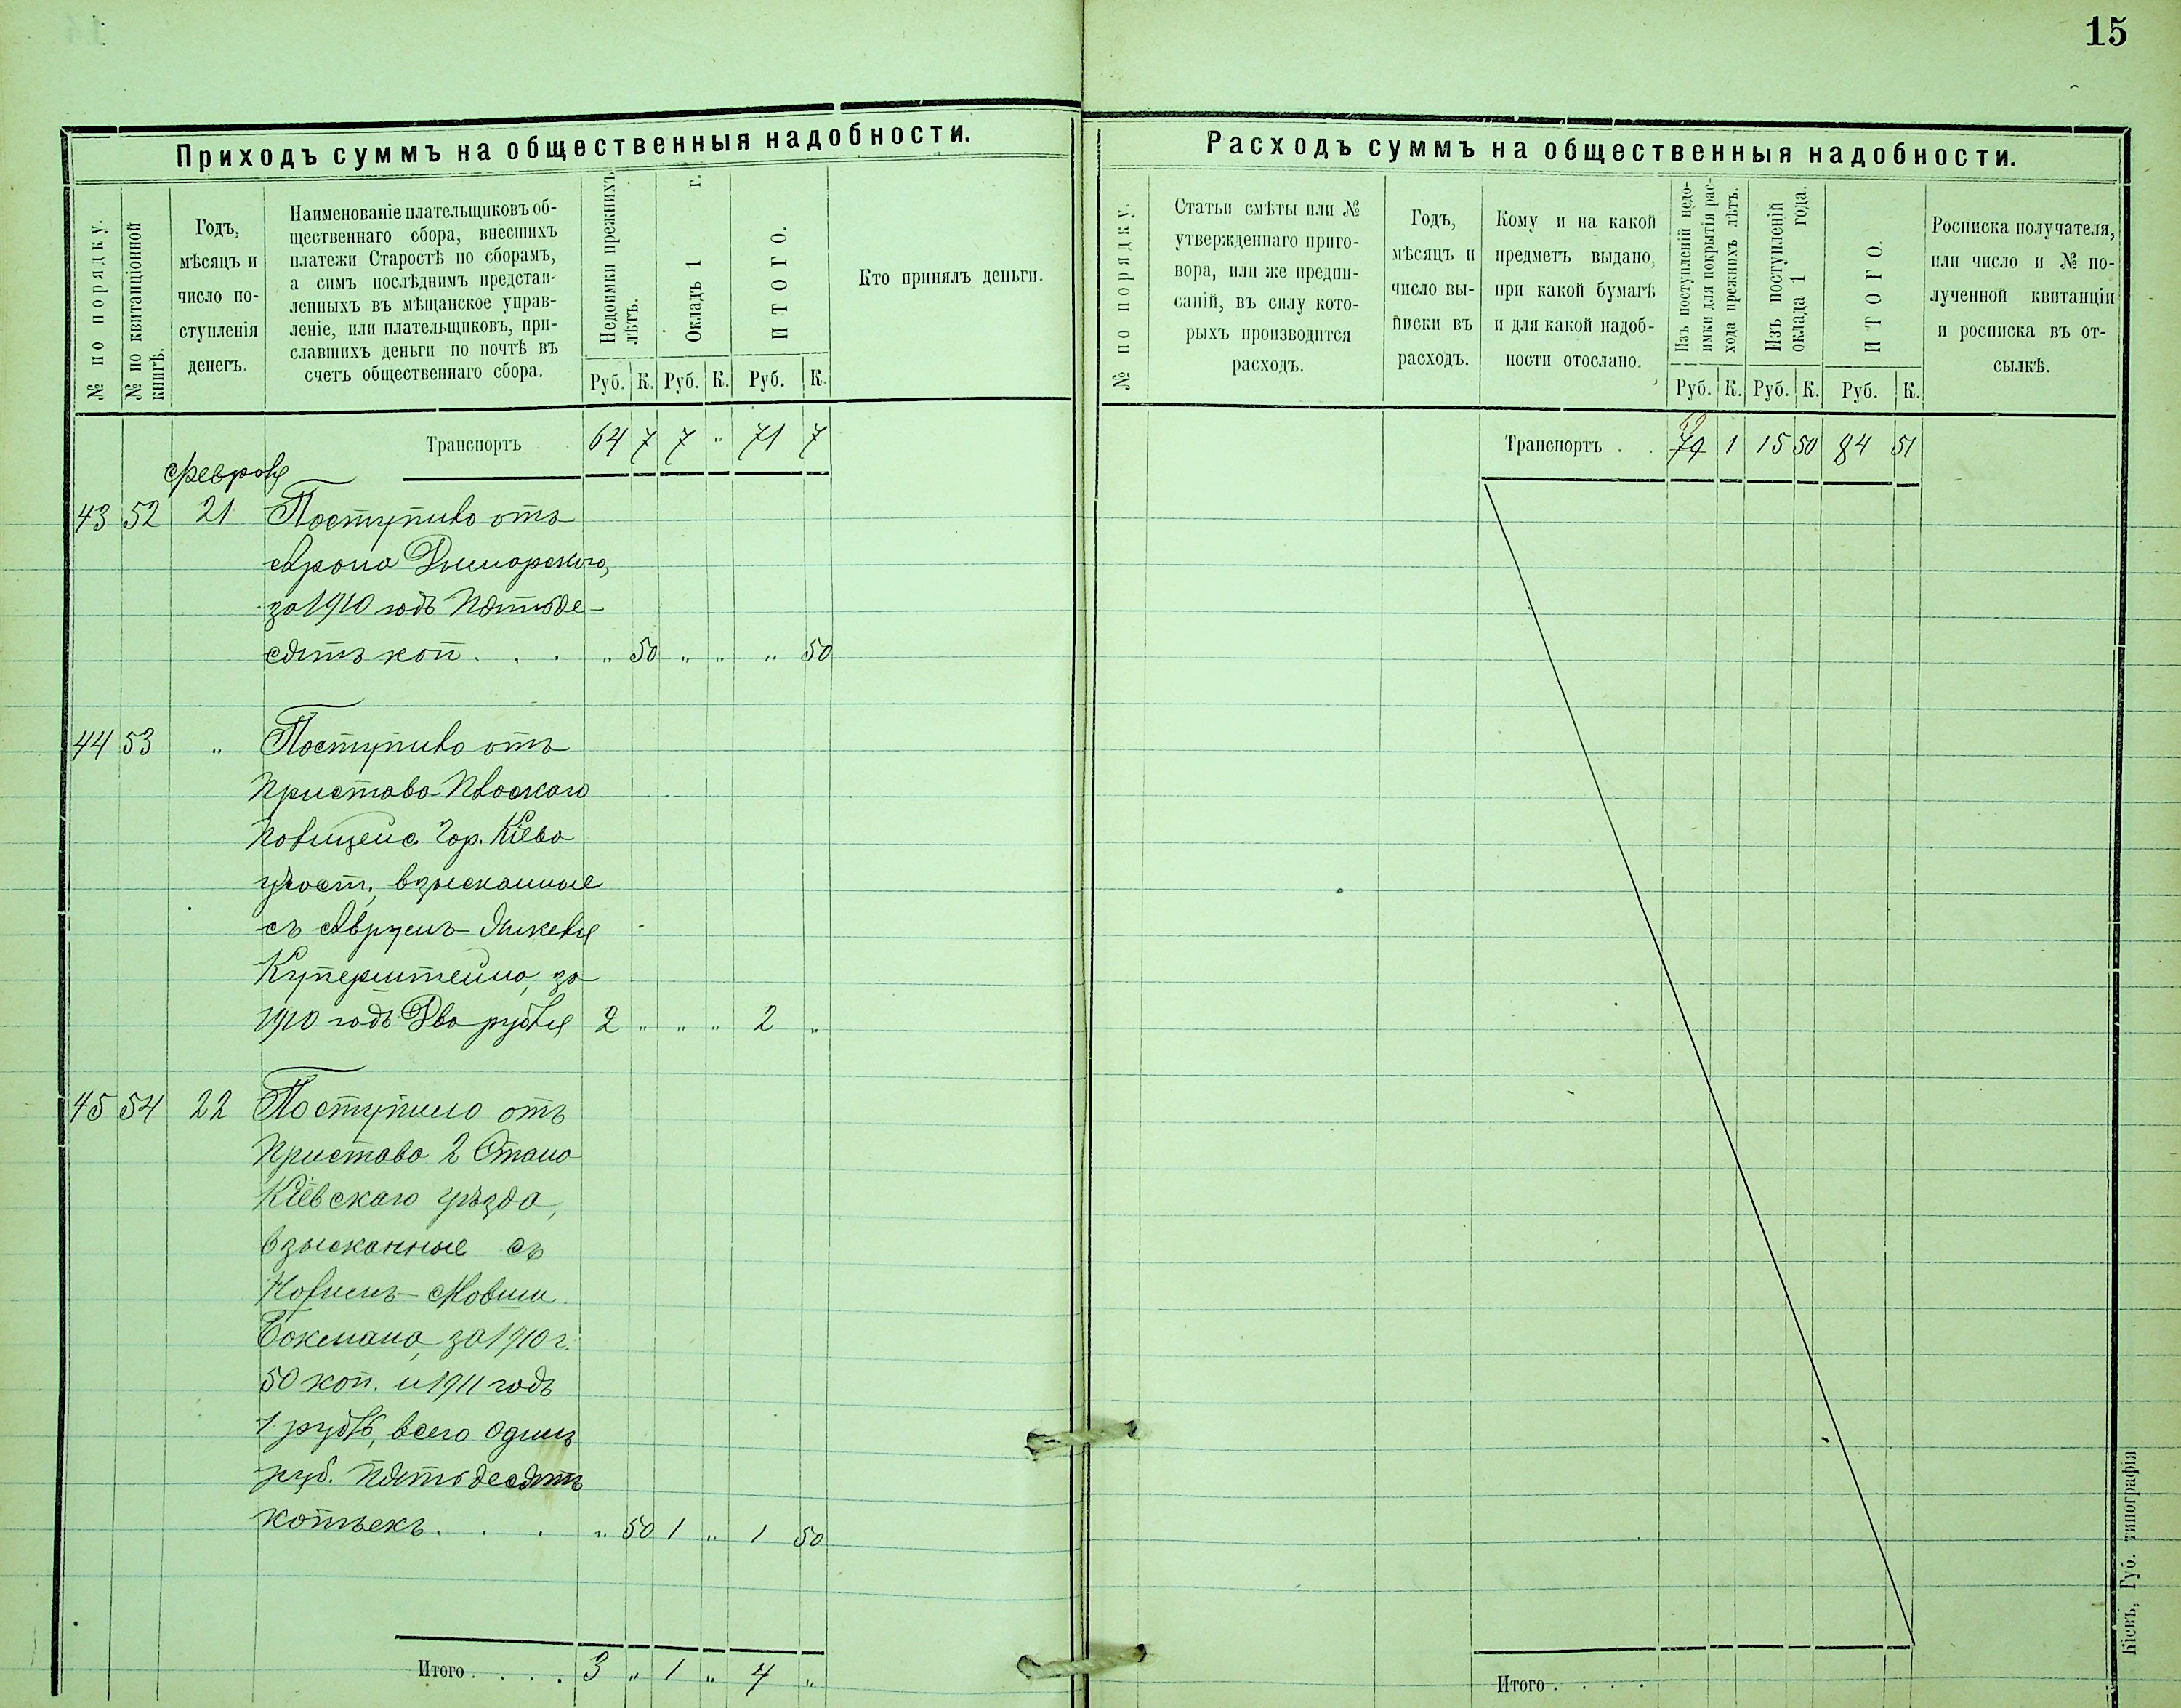 15
Приходъ суммъ на общественныя надобности.
№ по порядку.
№ по квитанціонной
книгѣ.
Годъ,
мѣсяцъ и
число по-
ступленія
денегъ.
Наименованіе плательщиковъ об-
щественнаго сбора, внесшихъ
платежи Старостѣ по сборамъ,
а симъ послѣднимъ представ-
ленныхъ въ мѣщанское управ-
леніе, или плательщиковъ, при-
славшихъ деньги по почтѣ въ
счетъ общественнаго сбора.
Недоимки прежнихъ
лѣтъ.
Окладъ 1 г.
ИТОГО.
Кто принялъ деньги.
Руб. К. Руб. К. Руб. К.
Транспортъ 64 7 7 " 71 7
Февраля
43 52 21 Поступило отъ
Арона Дымарского,
за 1910 годъ Пятьде-
сятъ коп. . . " 50 " " " 50
44 53 " Поступило отъ
Пристава Плоского
Полицейс. Гор. Кіева
участ., взысканные
съ Аврумъ-Янкеля
Куперштейна, за
1910 годъ Два рубля 2 " " " 2 "
45 54 22 Поступило отъ
Пристава 2 Стана
Кіевскаго уѣзда,
взысканные съ
Мовши
Бокмана, за 1910 г.
50 коп. и 1911 годъ
1 рубль, всего Одинъ
руб. Пятьдесятъ
копѣекъ. . . " 50 1 " 1 50
Итого . . . . 3 " 1 " 4 "
Расходъ суммъ на общественныя надобности.
№ по порядку.
Статьи смѣты или №
утвержденнаго приго-
вора, или же предпи-
саній, въ силу кото-
рыхъ производится
расходъ.
Годъ,
мѣсяцъ и
число вы-
писки въ
расходъ.
Кому и на какой
предметъ выдано,
при какой бумагѣ
и для какой надоб-
ности отослано.
Изъ поступленій недо-
имки для покрытія рас-
хода прежнихъ лѣтъ.
Изъ поступленій
оклада 1 года.
ИТОГО.
Росписка получателя,
или число и № по-
лученной квитанціи
и росписка въ от-
сылкѣ.
Руб. К. Руб. К. Руб. К.
Транспортъ . . 1 15 50 84 51
Итого . . . .
Кіевъ, Губ. типографія